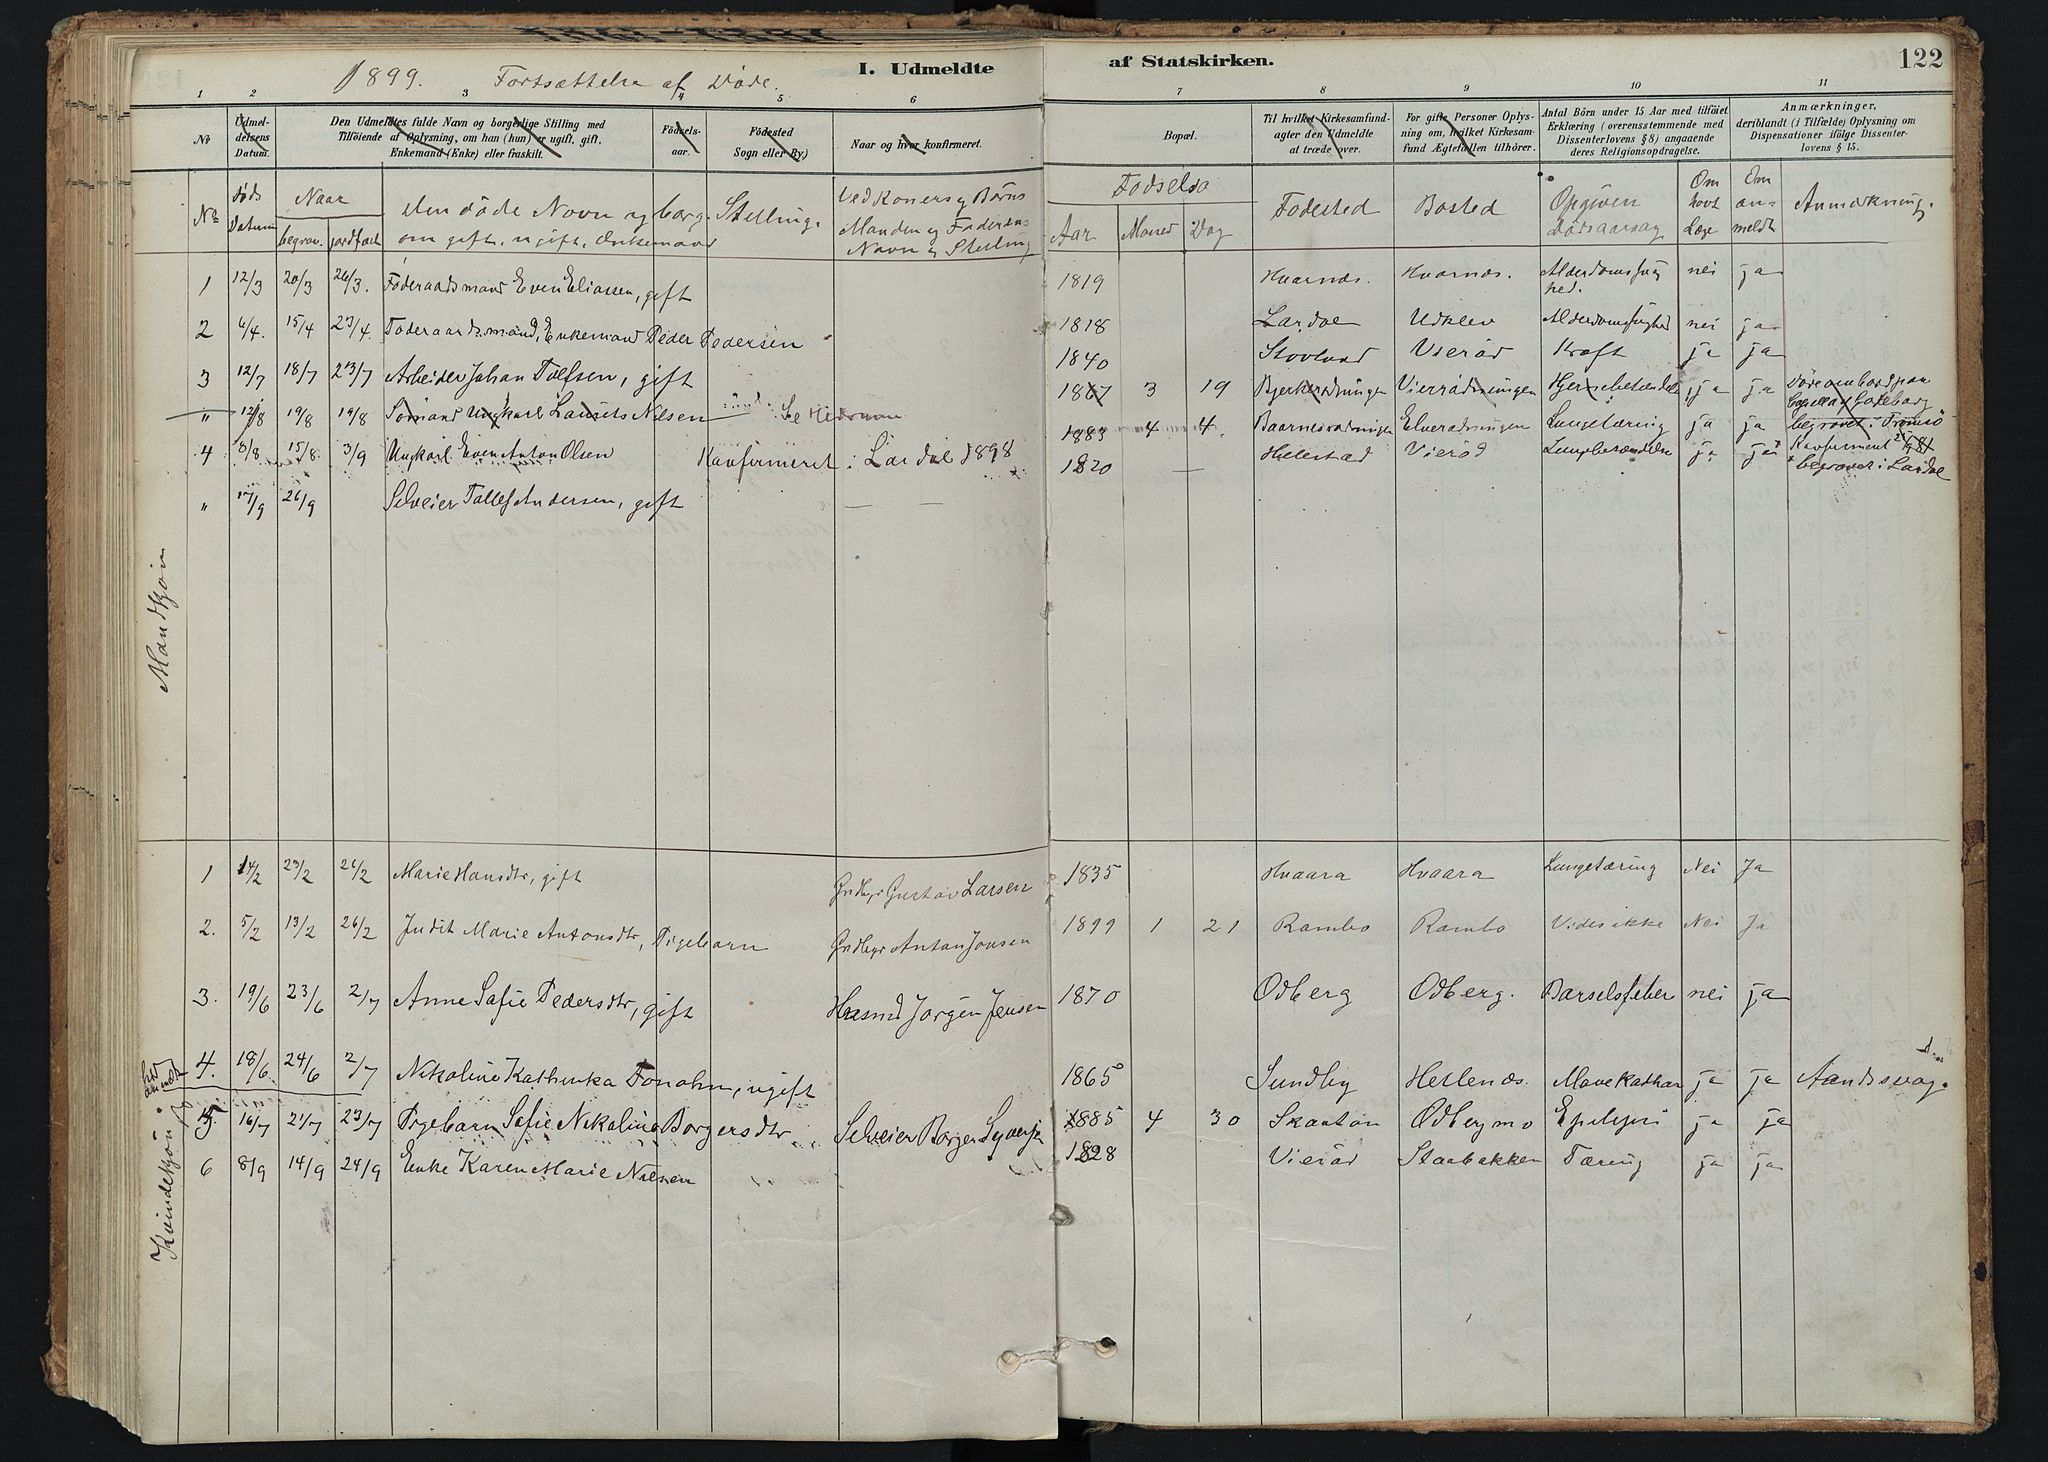 1899. Fortsættelse af Døde.
I. Udmeldte af Statskirken.
122
1 2 3 4 5 6 7 8 9 10 11
No
Udmel-
delsens
Datum.
Den Udmeldtes fulde Navn og borgerlige Stilling med
Tilföiende af Oplysning, om han (hun) er ugift, gift,
Enkemand (Enke) eller fraskilt.
Födsels-
aar.
Födested
Sogn eller By.)
Naar og hvor konfirmeret.
Bopæl.
Til hvilket Kirkesamfund-
agter den Udmeldte
at træde over.
For gifte Personer Oplys-
ning om, hvilket Kirkesam-
fund Ægtefællen tilhörer.
Antal Börn under 15 Aar med tilföiet
Erklæring (overensstemmende med
Dissenterlovens § 8) angaaende
deres Religionsopdragelse.
Anmærkninger,
deriblandt (i Tilfælde) Oplysning om
Dispensationer ifölge Dissenter-
lovens § 15.
No
Døds
Datum
Naar
begrav. jordfæst
den døde Navn og borg. Stilling.
om gift, ugift, Enkemand
Ved Koners og Børns
Mandens og Faderens
Navn og Stilling
Fødsels
Aar Maaned Dag
Fødested
Bosted
Opgiven
Dødsaarsag
Om
hvt
Læge
Om
an-
meldt
Anmærkning.
Mandkjøn
1 12/3 20/3 26/3. Føderaadsmand Even Eliassen, gift 1819 Hvarnes. Hvarnes. Alderdomssvaghed. nei ja
2 6/4. 15/4 23/4. Føderaadsmand, Enkemand Peder Pedersen 1818 Lardal Udklev Alderdomssvaghed nei ja
3 12/7 18/7 23/7 Arbeider Johan Tolfsen, gift 1840 Stovland Vierød Kræft ja ja
" 12/8 19/8 19/8 Sømand Ungkarl Laurits Nilsen 1867 3 19 ja ja
4 8/8 15/8. 3/9 Ungkarl Even Anton Olsen Konfirmeret i Lardal 1898 1883 4 4. Lungetæring ja ja
" 17/9 26/9 Selveier Tollef Andersen, gift — — 1820 — Helestad Vierød Lungebetændelse ja ja
begravet i Tromsø
begravet i Lardal
Kvindekjøn
1 14/2 23/2 26/2 Marie Hansdtr, gift Grdbgr Gustav Larsen 1835 Hvaara Hvaara Lungetæring Nei Ja
2. 5/2 13/2 26/2 Judit Marie Antonsdtr, Pigebarn Grdbgr Anton Jonsen 1899 1 21 Rambo Rambo Vides ikke Nei Ja
3. 19/6 23/6 2/7 Anne Sofie Pedersdtr, gift Husmd Jørgen Jensen 1870 Odberg Odberg. Barselsfeber nei ja
4. 18/6. 24/6 2/7 Nikoline Kathinka Fonahn, ugift 1865 Sundby Hellands. Mavekathar ja ja Aandssvag.
5 16/7 21/7 23/7 Pigebarn Sofie Nikoline Borgersdtr Selveier Borger Syversen 1885 4 30 Skaatan Odbergmo Epilepsi ja ja
6 8/9 14/9 24/9 Enke Karen Marie Nilsen 1828 Vierød Staabakken Tæring ja ja